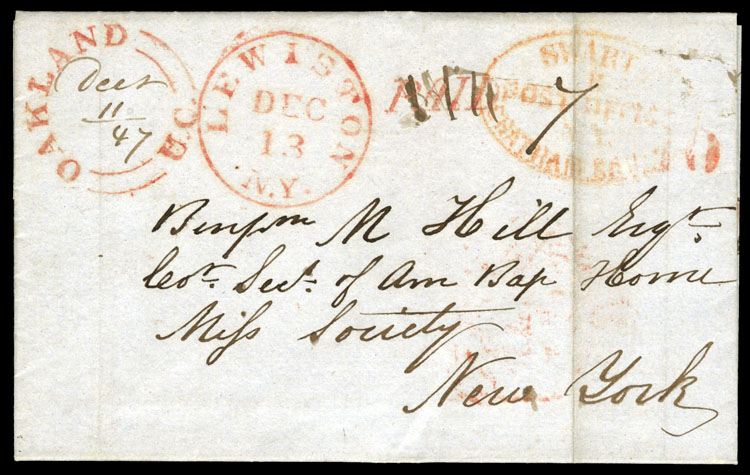 OAKLAND U.C.
Decr
11/47
LEWISTON
DEC
13
N.Y.
PAID
7
SWARTS
POST OFFICE
CHATHAM
Benjm M Hill Esqr.
Cor. Sect. of Am Bap Home
Miss Society
New York